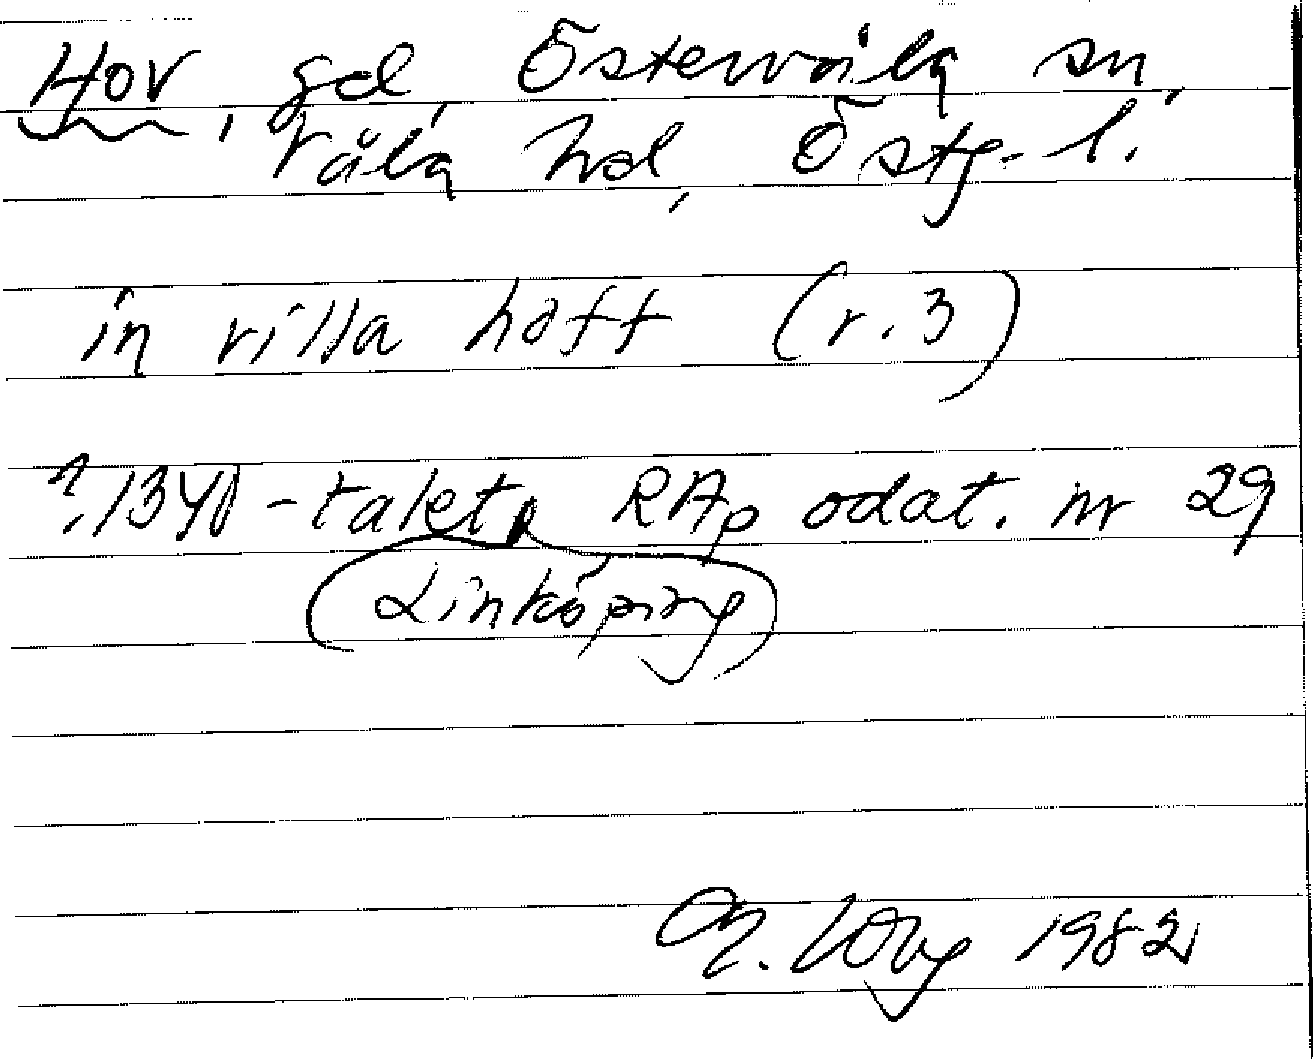 Hov, gd, Östervåla sn,
Våla hd, Östg. l.
in villa hoff (r. 3)
?, 1340-talet, RAp odat. nr 29
(Linköping)
1982